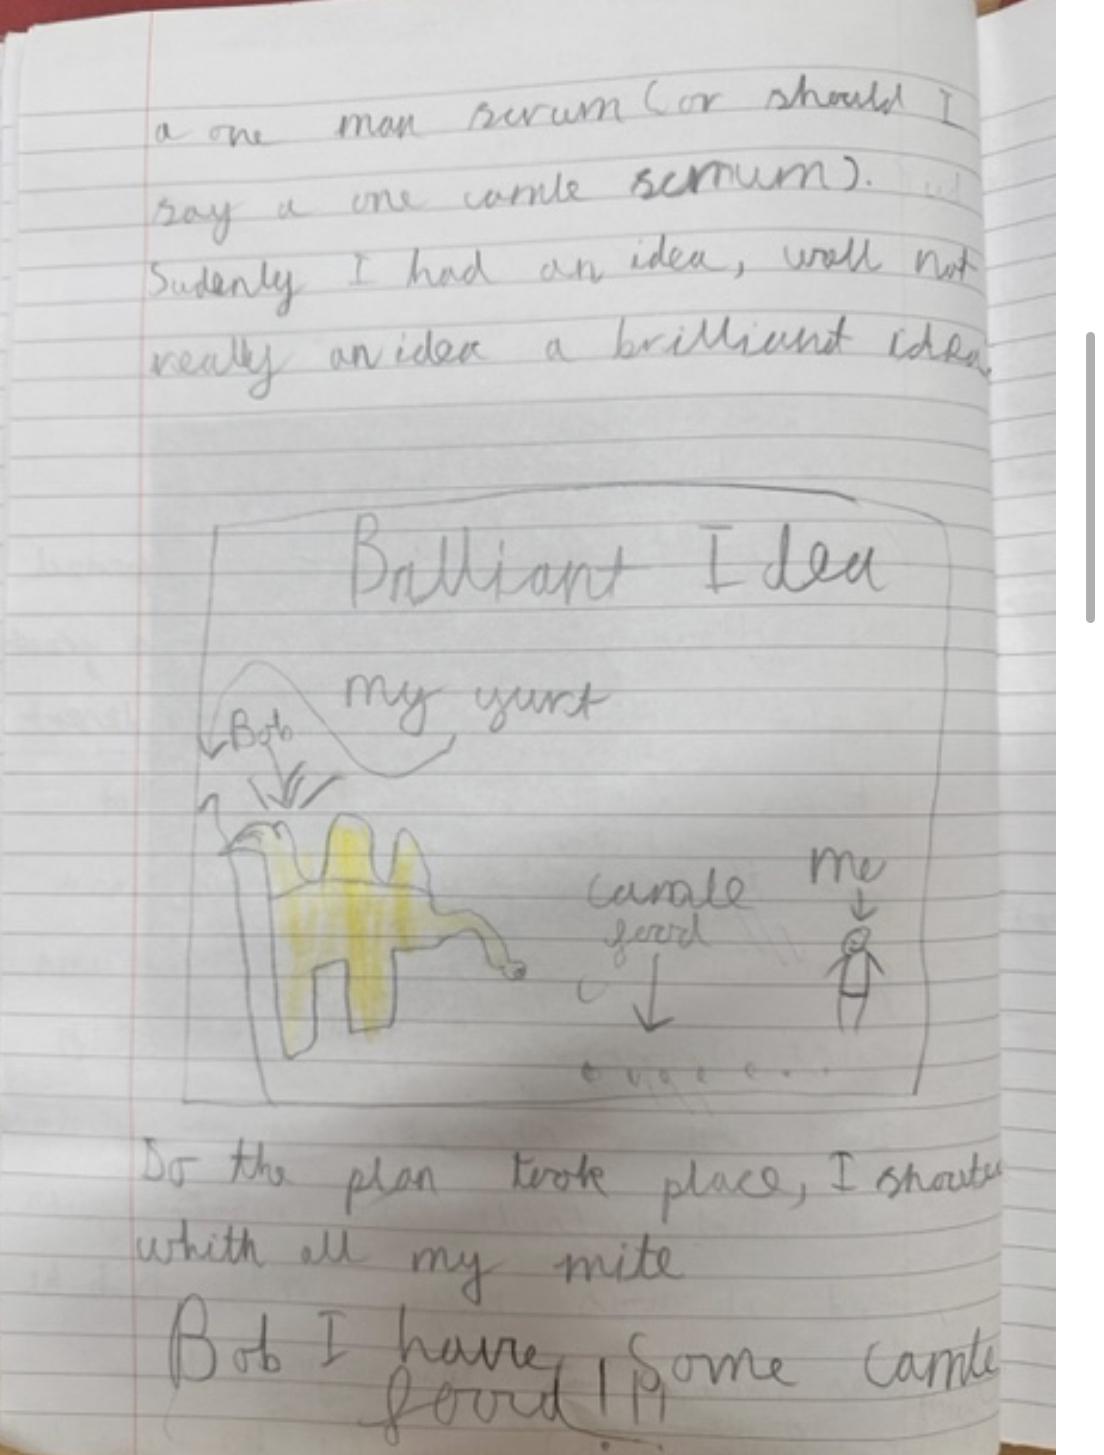 a one man scrum (or should I
say a one camle scrrum).
Sudenly I had an idea, well not
really an idea a brilliant idea
Brilliant Idea
my yurt
Bob
Me
camale
food
So the plan took place, I shoute
whith all my mite
Bob I have some camle
food!!!